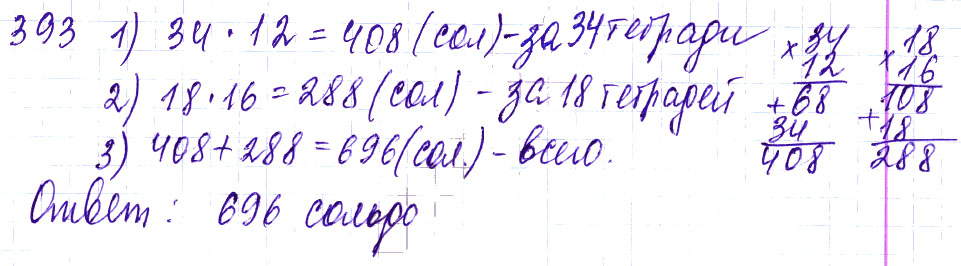 393 1) 34 · 12 = 408 (сол) - за 34 тетради
2) 18 · 16 = 288 (сол) - за 18 тетрадей
3) 408 + 288 = 696 (сол.) - всего.
Ответ: 696 сольдо
× 34
12
+ 68
34
408
× 18
16
+ 108
18
288